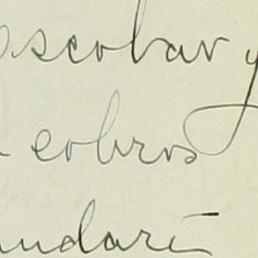 ascobar y
cobros
undari